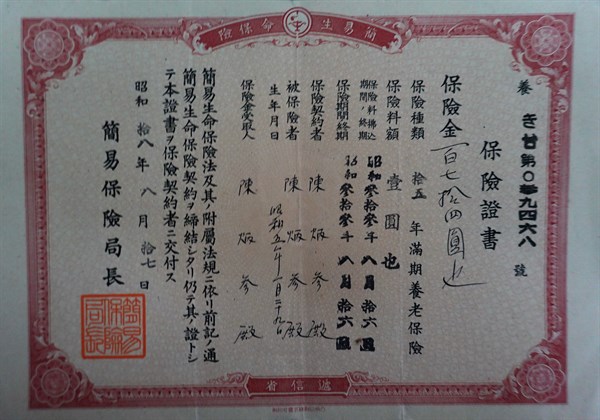 簡易生命保險
養 き廿第〇參九四六八 號
保險證書
保險金百七拾四圓也
保險種類 拾五年滿期養老保險
保險料額 壹圓也
保險料拂込期間ノ終期 昭和參拾參年八月拾六日
保險期間終期 昭和參拾參年八月拾六日
保險契約者 陳 參殿
被保險者 陳 參殿
生年月日 昭和五年一月二十九日
保險金受取人 陳 參殿
簡易生命保險法及其ノ附屬法規ニ依リ前記ノ通
簡易生命保險契約ヲ締結シタリ仍テ其ノ證トシ
テ本證書ヲ保險契約者ニ交付ス
昭和拾八年八月拾七日
簡易保險局長
簡易保險局長
遞信省